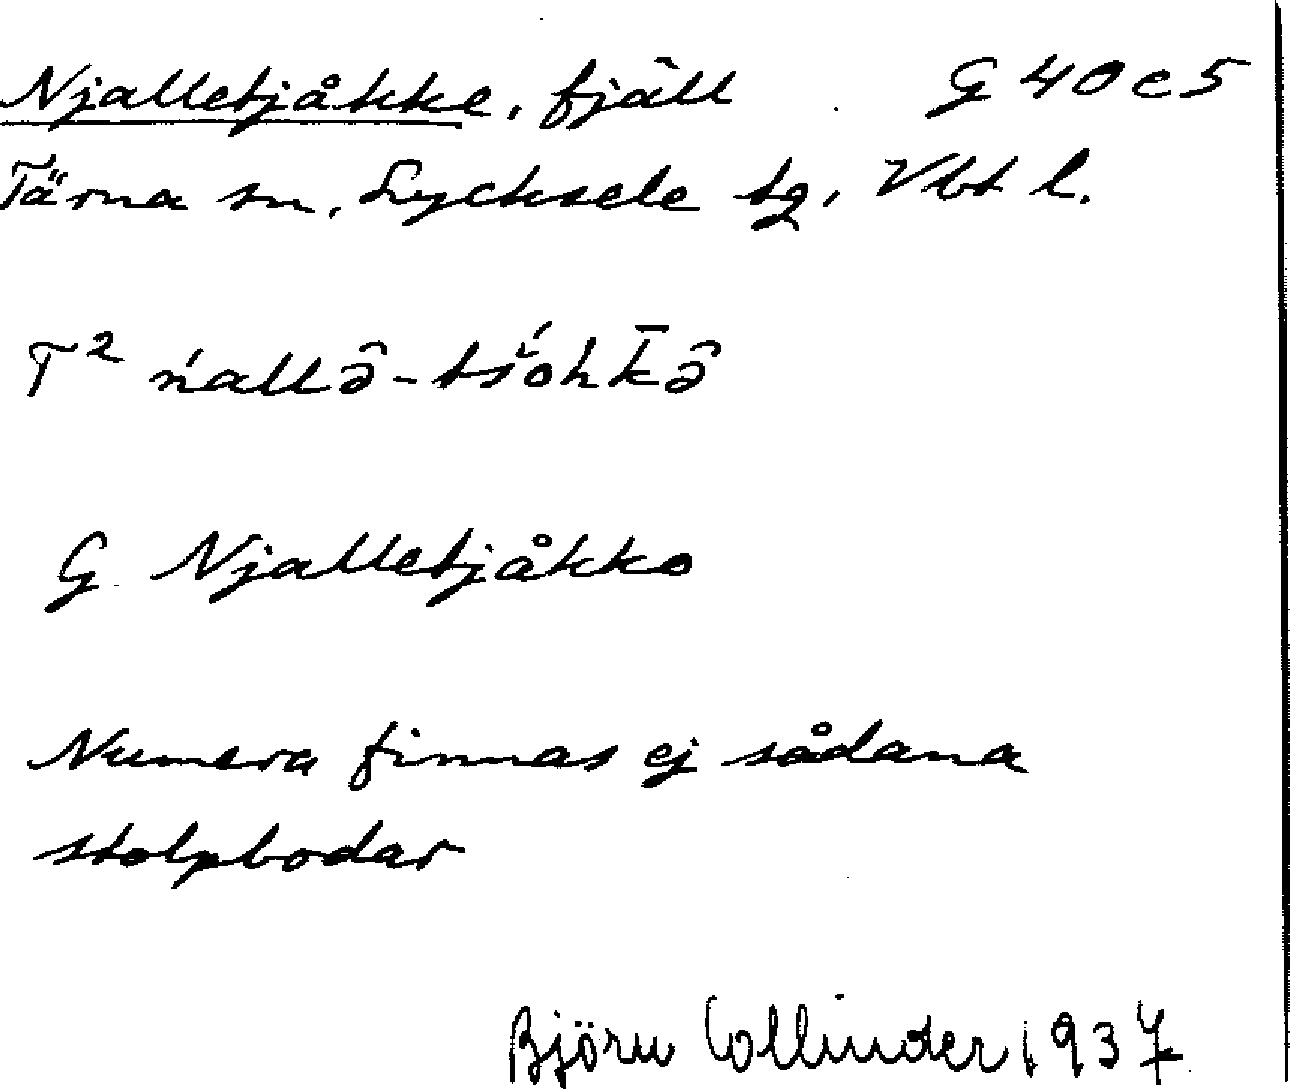 Njalletjåkke, fjäll G 40 c 5
Tärna sn, Lycksele tg, Vbt l.
T² ńallə̑-tś́ohk̄ə̑
G Njalletjåkko
Numera finnas ej sådana
stolpbodar
Björn Collinder 1937